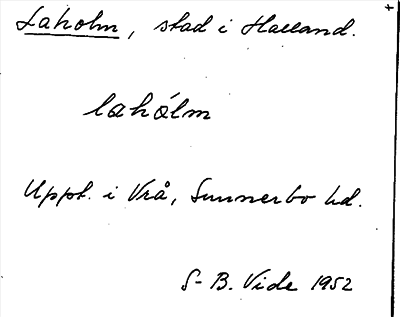 Laholm, stad i Halland.
lahólm
Uppt. i Vrå, Sunnerbo hd.
S-B. Vide 1952